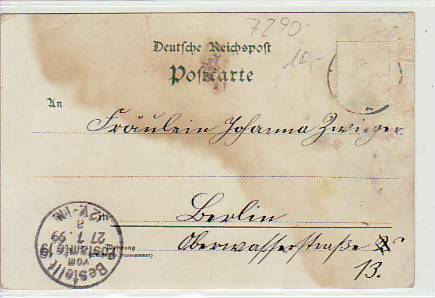 7290.
10,-
Deutsche Reichspost
Postkarte
An
Fräulein Johanna Zwinger
Berlin
Oberwasserstraße
13.
Bestellt
vom
Postamte 19
27.7.99